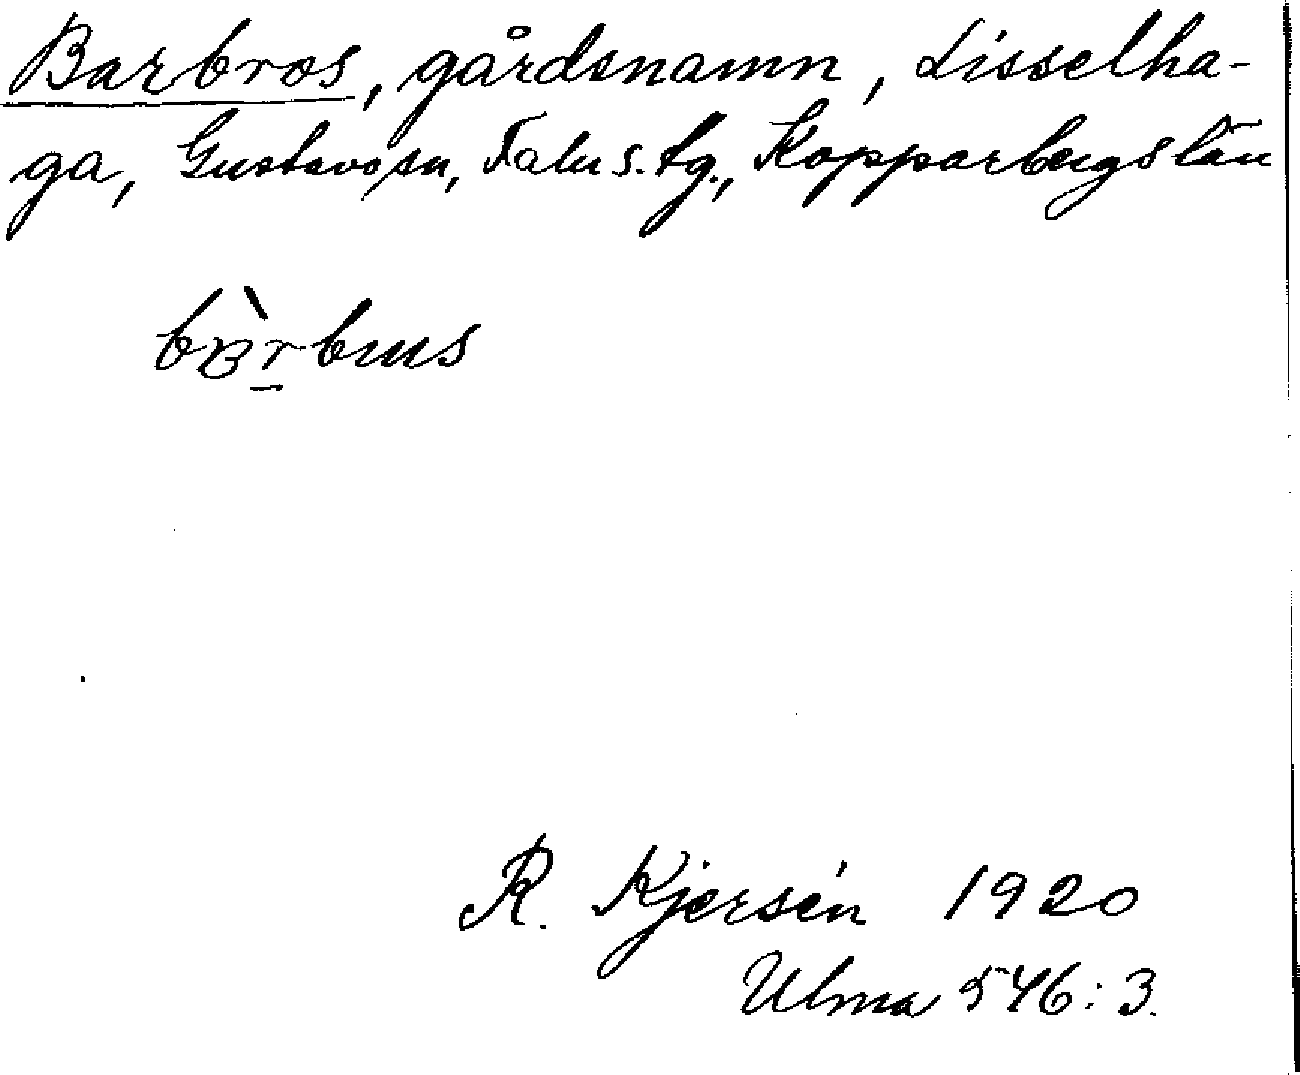 Barbros, gårdsnamn, Lisselha-
ga, Gustavs sn, Falu s. tg., Kopparbergs län
R. Kjersén 1920
Ulma 546:3.